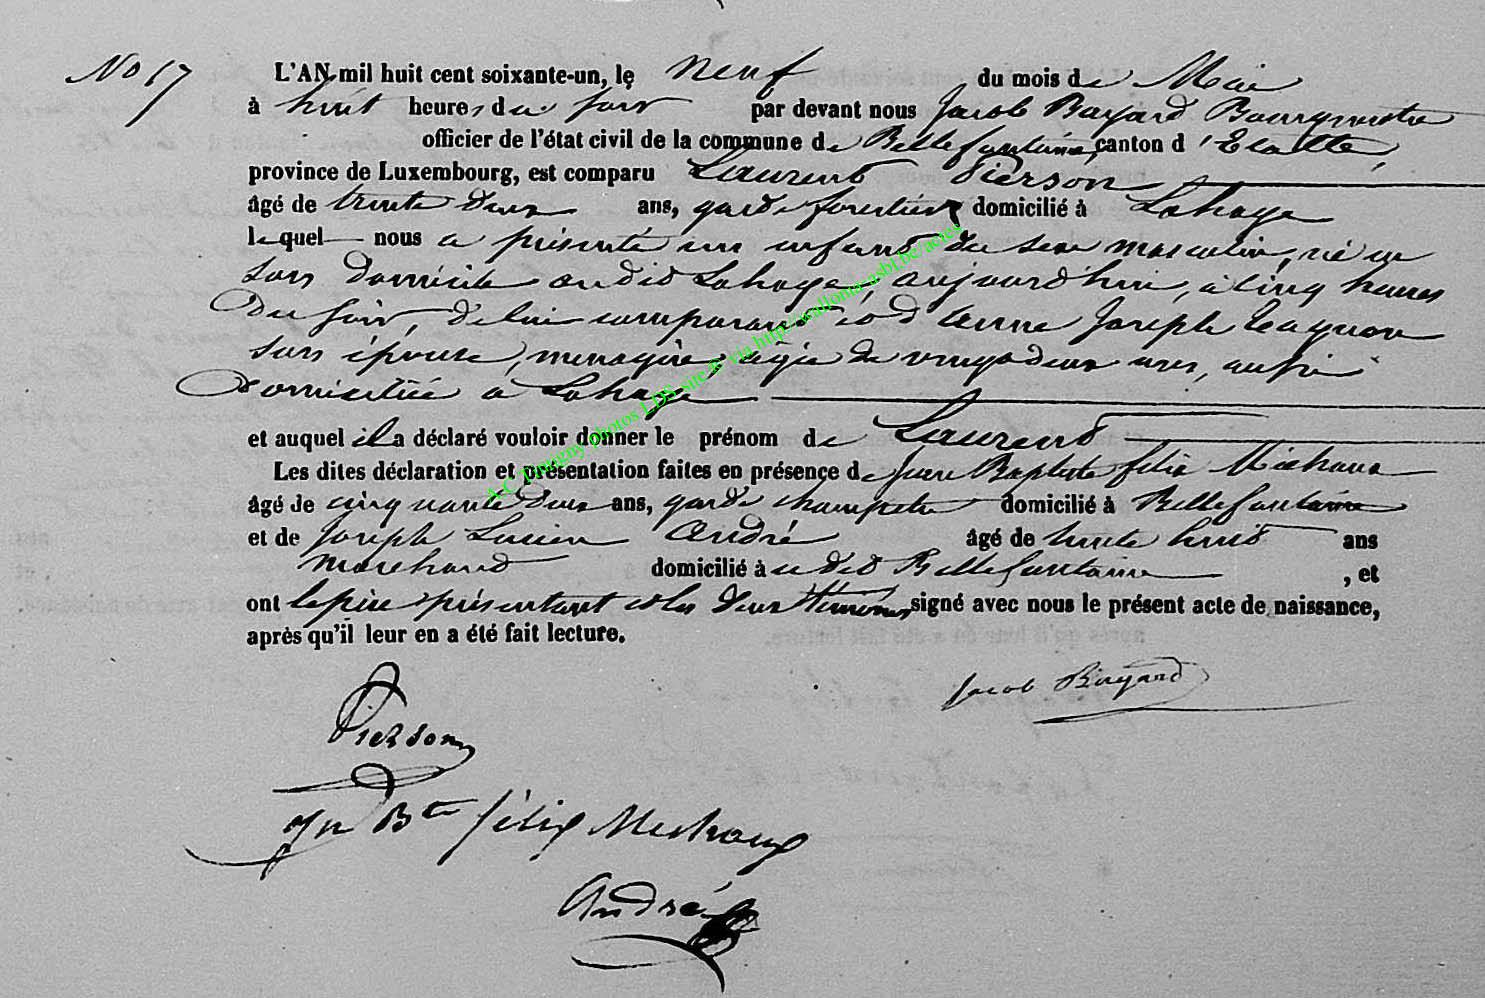 No 17
L'AN mil huit cent soixante-un, le neuf du mois de Mai
à huit heures du soir par devant nous Jacob Bayard Bourgmestre
officier de l'état civil de la commune de Bellefontaine, canton d'Etalle,
province de Luxembourg, est comparu Laurent Pierson
âgé de trente deux ans, garde forestier domicilié à Lahage
lequel nous a présenté un enfant du sexe masculin, né en
son domicile audit Lahage, aujourd'hui, à cinq heures
du soir, de lui comparant et d'Anne Joseph
son épouse, ménagère, âgée de vingt deux ans, aussi
domiciliée à Lahage
et auquel il a déclaré vouloir donner le prénom de Laurent
Les dites déclaration et présentation faites en présence de Jean Baptiste félix Michaux
âgé de cinquante deux ans, garde champetre domicilié à Bellefontaine
et de Joseph Lucien André âgé de trente huit ans
marchand domicilié à udit Bellefontaine, et
ont le père présentant et les deux témoins signé avec nous le présent acte de naissance,
après qu'il leur en a été fait lecture.
Jacob Bayard
Pierson
Jn Bte félix Michaux
André
A.C. Tintigny photos LDS, site ® via http://wallonia-asbl.be/actes